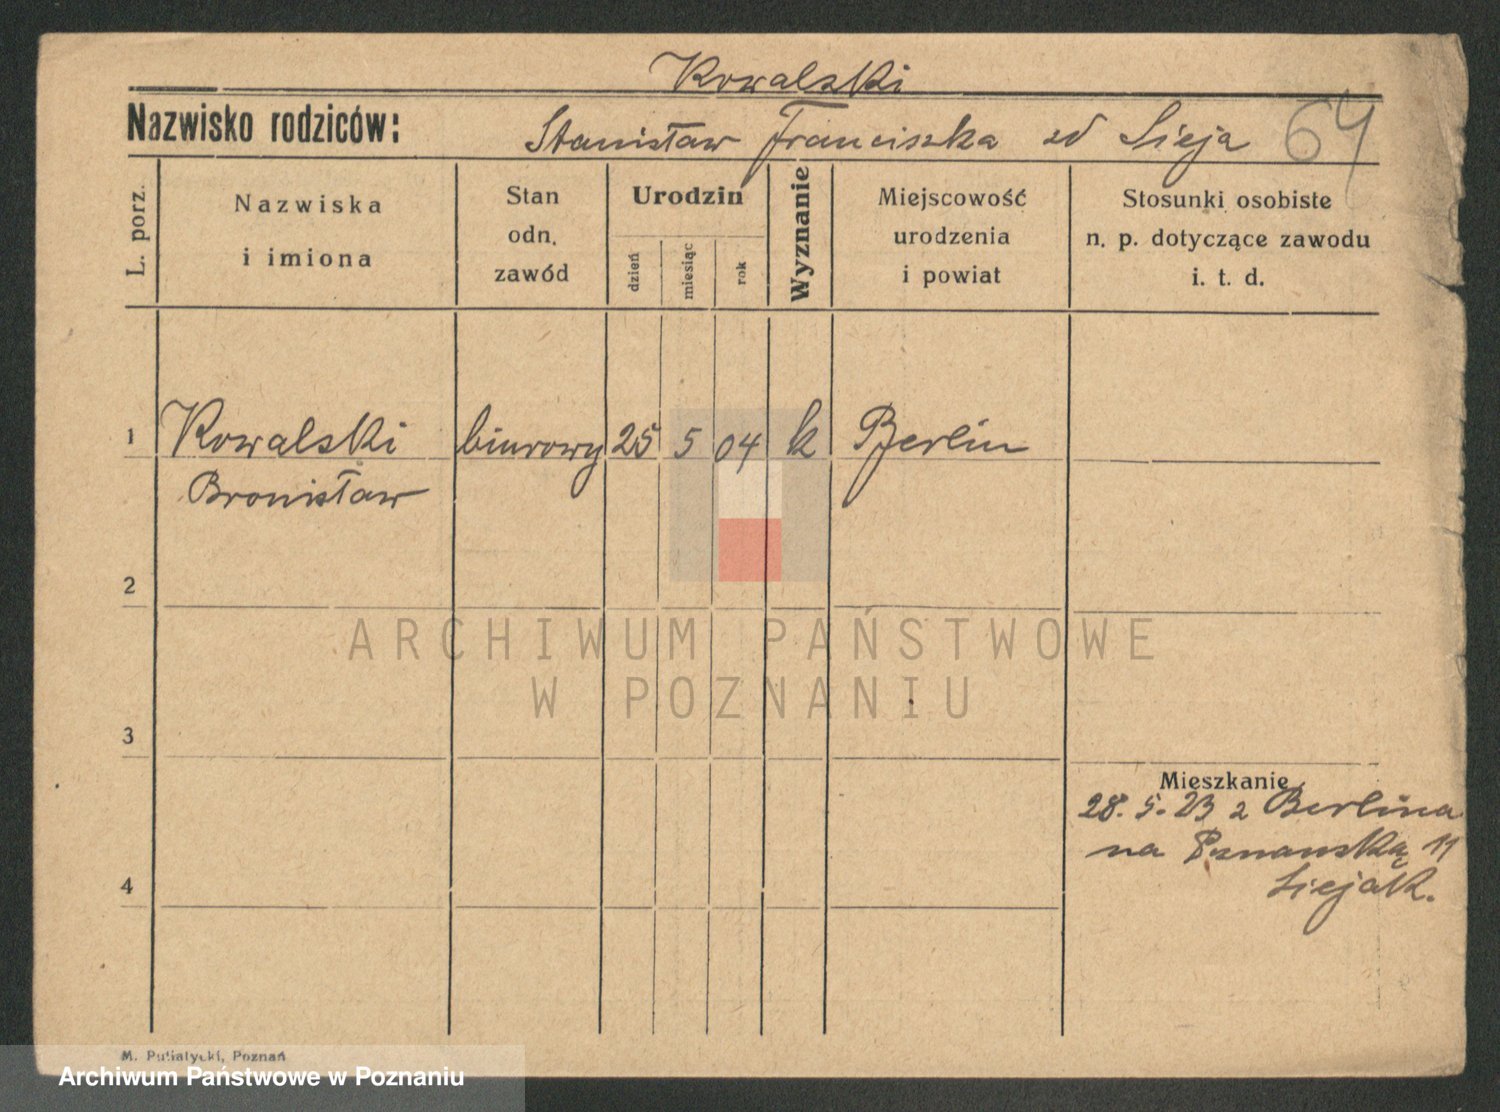 Kowalski
Nazwisko rodziców: Stanisław Franciszka zd Sieja 64
L. porz.
Nazwiska
i imiona
Stan
odn.
zawód
Urodzin
dzień
miesiąc
rok
Wyznanie
Miejscowość
urodzenia
i powiat
Stosunki osobiste
n. p. dotyczące zawodu
i. t. d.
1 Kowalski biurowy 25 5 04 k Berlin
Bronisław
2
ARCHIWUM PAŃSTWOWE
W POZNANIU
3
Mieszkanie
28. 5. 23 z Berlina
na Poznańską 11
Siejak.
4
M. Putiatycki, Poznań
Archiwum Państwowe w Poznaniu